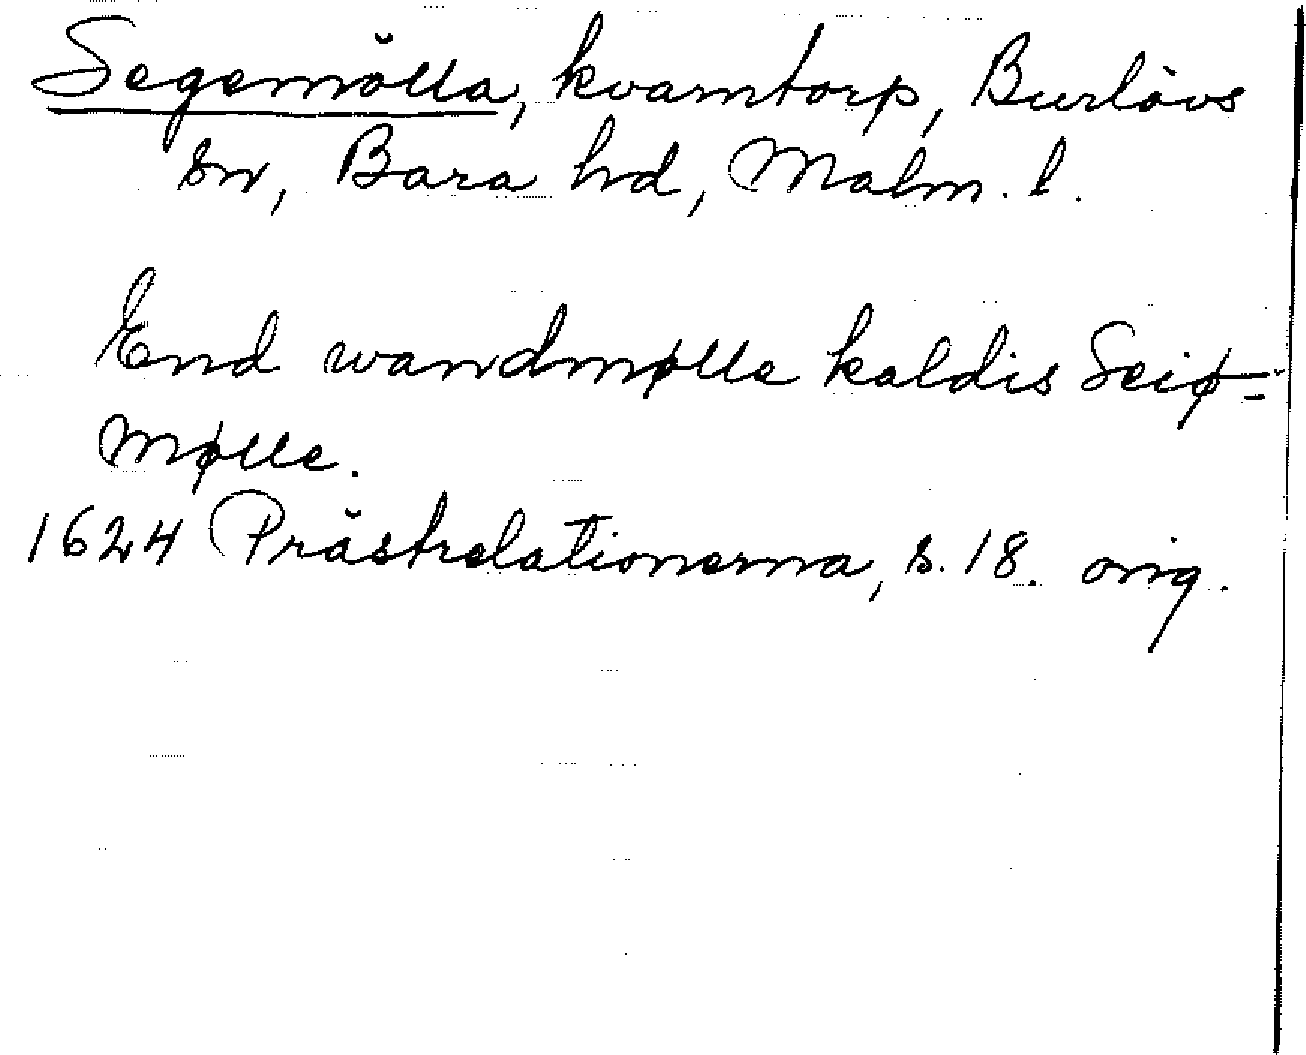 Segemölla, kvarntorp, Burlövs
sn, Bara hd, Malm. l.
End wandmølle kaldis Seiø-
mølle.
1624 Prästrelationerna, s. 18. orig.